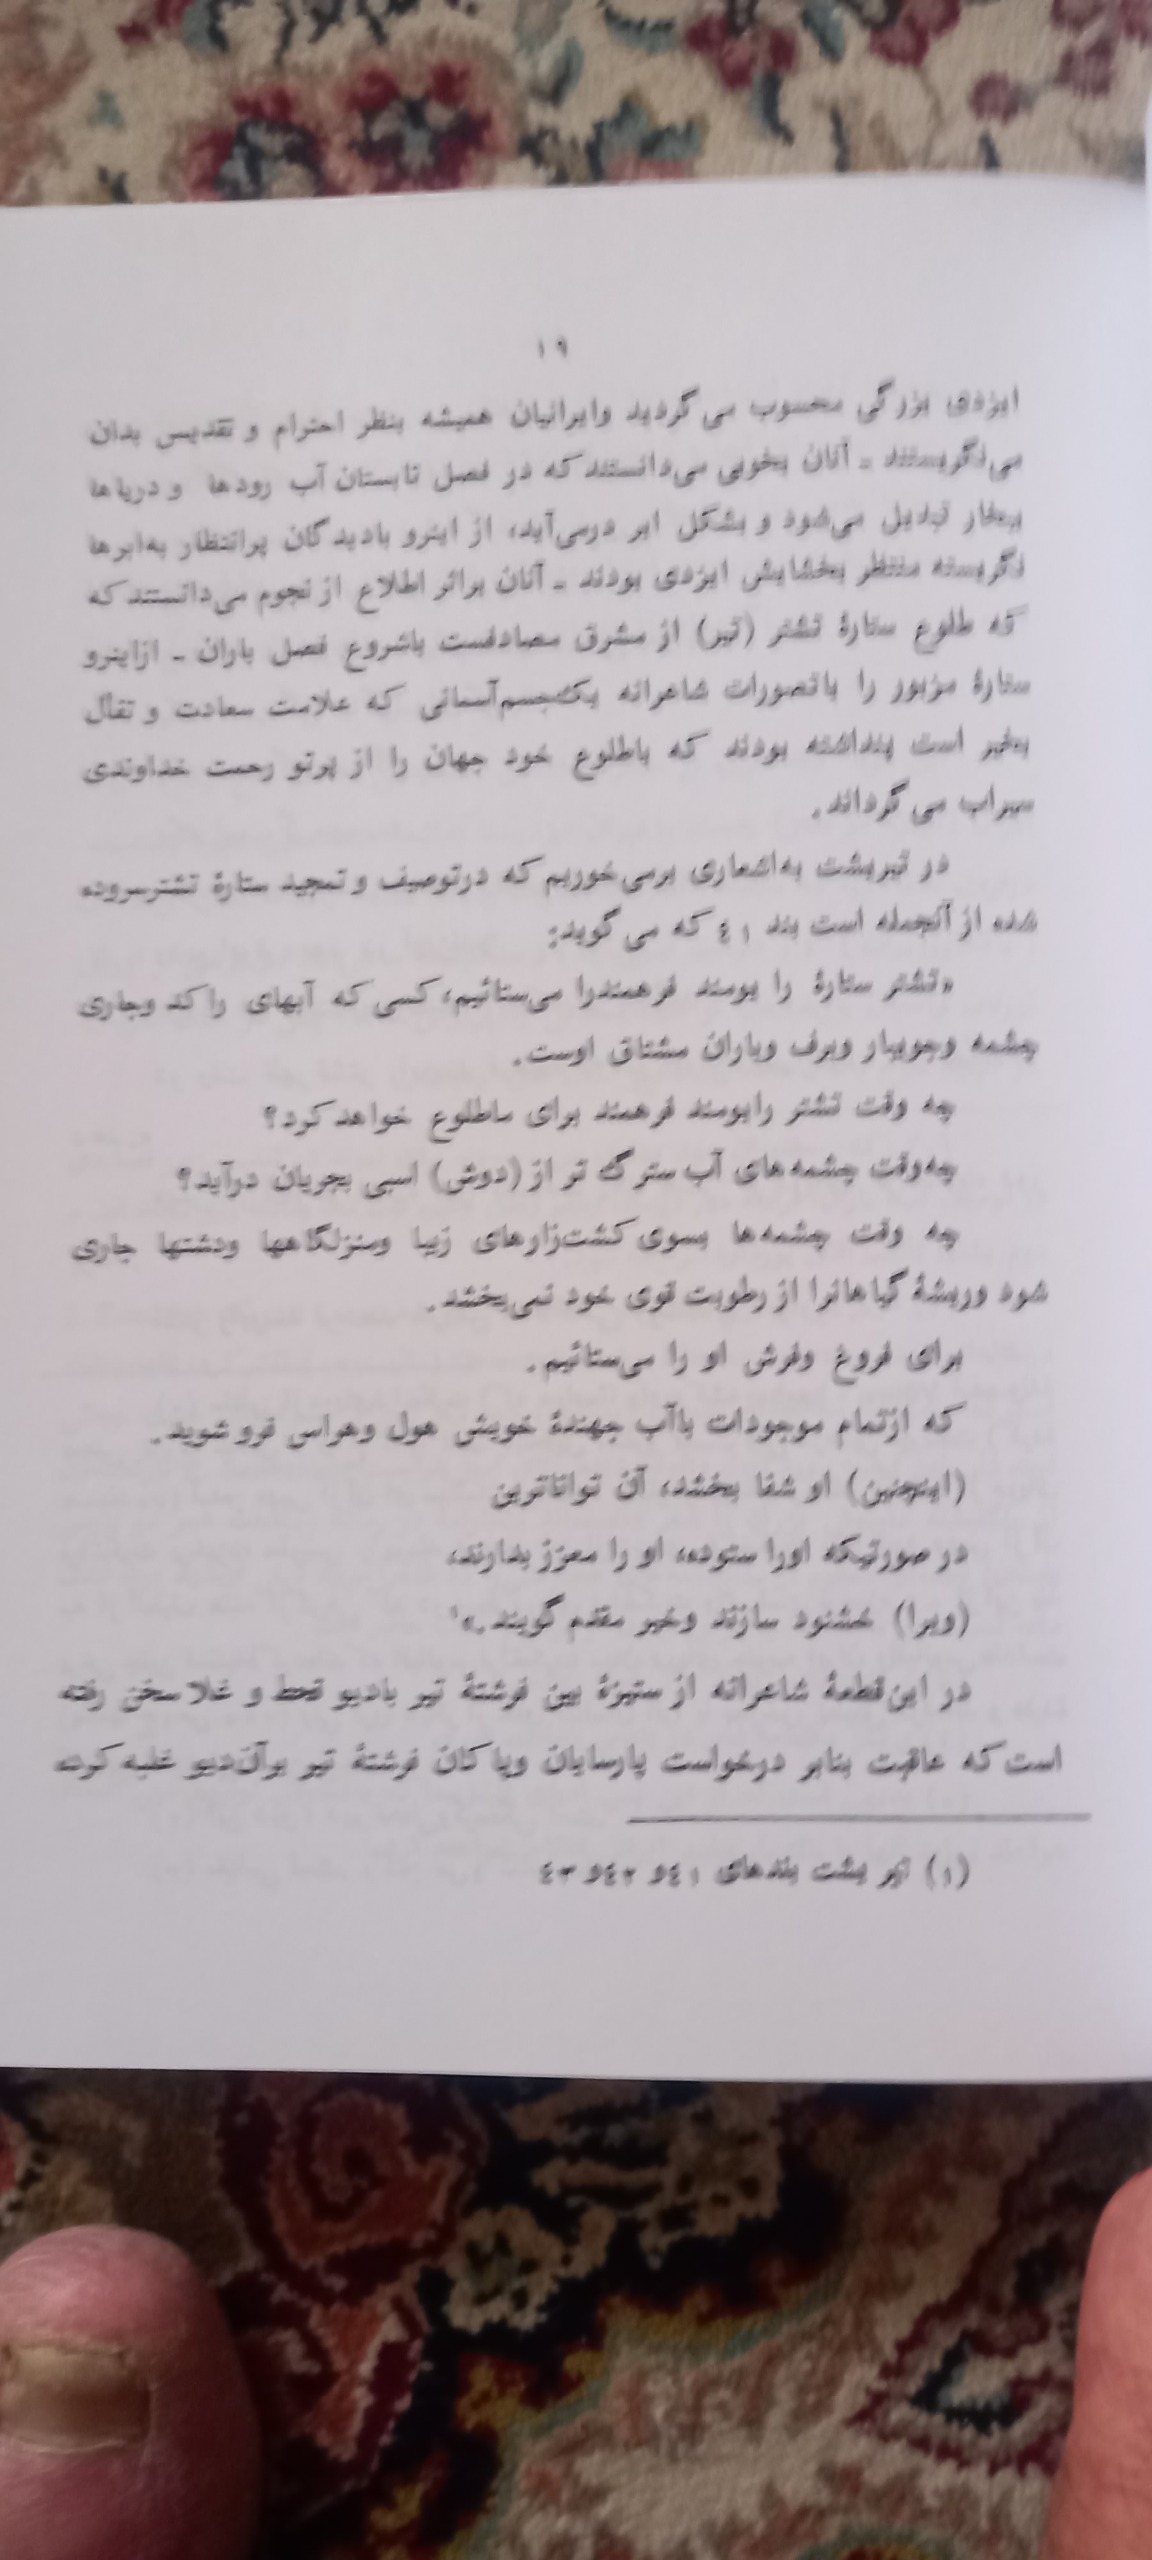 ۱۹
ایزدی بزرگی محسوب می‌گردید وایرانیان همیشه بنظر احترام و تقدیس بدان
می‌نگریستند ـ آنان بخوبی می‌دانستند که در فصل تابستان آب رودها و دریاها
ببخار تبدیل می‌شود و بشکل ابر درمی‌آید، از اینرو بادیدگان پرانتظار به‌ابرها
نگریسته منتظر بخشایش ایزدی بودند ـ آنان براثر اطلاع از نجوم می‌دانستند که
که طلوع ستارهٔ تشتر (تیر) از مشرق مصادفست باشروع فصل باران ـ ازاینرو
ستارهٔ مزبور را باتصورات شاعرانه یک‌جسم‌آسمانی که علامت سعادت و تفأل
بخیر است پنداشته بودند که باطلوع خود جهان را از پرتو رحمت خداوندی
سیراب می‌گرداند.
در تیریشت به‌اشعاری برمی‌خوریم که درتوصیف و تمجید ستارهٔ تشترسروده
شده از آنجمله است بند ٤١ که می‌گوید:
«تشتر ستارهٔ را یومند فرهمندرا می‌ستائیم، کسی که آبهای راکد وجاری
چشمه وجویبار وبرف وباران مشتاق اوست.
چه وقت تشتر رایومند فرهمند برای ماطلوع خواهد کرد؟
چه‌وقت چشمه‌های آب سترگ تر از (دوش) اسبی بجریان درآید؟
چه وقت چشمه‌ها بسوی کشت‌زارهای زیبا ومنزلگاهها ودشتها جاری
شود وریشهٔ گیاهانرا از رطوبت قوی خود نمی‌بخشد.
برای فروغ وفرش او را می‌ستائیم.
که ازتمام موجودات باآب جهندهٔ خویش هول وهراس فرو شوید.
(اینچنین) او شفا بخشد، آن تواناترین
در صورتیکه اورا ستوده، او را معزز بدارند،
(ویرا) خشنود سازند وخیر مقدم گویند.»۱
در این‌قطعهٔ شاعرانه از ستیزهٔ بین فرشتهٔ تیر بادیو قحط و غلا سخن رفته
است که عاقبت بنابر درخواست پارسایان وپاکان فرشتهٔ تیر برآن‌دیو غلبه کرده
(١) تیر یشت بندهای ٤١و ٤٢و ٤٣